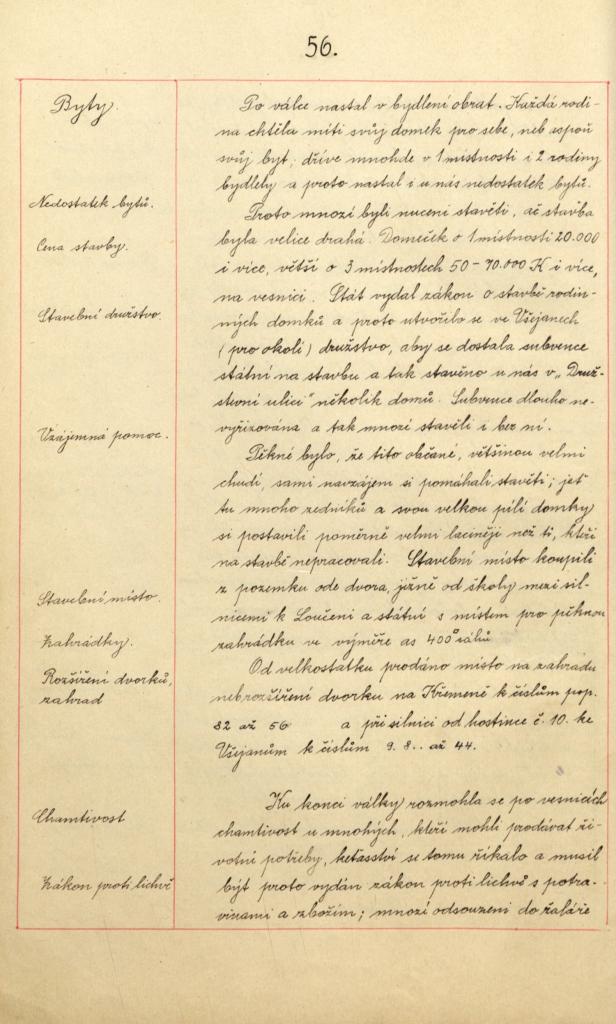 56.
Byty.
Po válce nastal v bydlení obrat. Každá rodi-
na chtěla míti svůj domek pro sebe, neb aspoň
svůj byt; dříve mnohde v 1 místnosti i 2 rodiny
bydlely a proto nastal i u nás nedostatek bytů.
Nedostatek bytů.
Proto mnozí byli nuceni stavěti, ač stavba
Cena stavby.
byla velice drahá. Domeček o 1 místnosti 20.000
i více, větší o 3 místnostech 50-70.000 K i více,
na vesnici. Stát vydal zákon o stavbě rodin-
Stavební družstvo.
ných domků a proto utvořilo se ve Všejanech
(pro okolí) družstvo, aby se dostala subvence
státní na stavbu a tak stavěno u nás v „Druž-
stevní ulici" několik domů. Subvence dlouho ne-
vyřizována a tak mnozí stavěli i bez ní.
Vzájemná pomoc.
Pěkné bylo, že tito občané, většinou velmi
chudí, sami navzájem si pomáhali stavěti; jeť
tu mnoho zedníků a svou velkou pílí domky
si postavili poměrně velmi laciněji než ti, kteří
na stavbě nepracovali. Stavební místo koupili
z pozemku ode dvora, jižně od školy mezi sil-
Stavební místo.
nicemi k Loučeni a státní s místem pro pěknou
Zahrádky.
zahrádku ve výměře as 400° sáhů
Rozšíření dvorků,
zahrad
Od velkostatku prodáno místo na zahradu
neb rozšíření dvorku na Křemeně k číslům pop.
32 až 56 a při silnici od hostince č. 10. ke
Všejanům k číslům 9. 8.. až 44.
Chamtivost
Ku konci války rozmohla se po vesnicích
chamtivost u mnohých, kteří mohli prodávat ži-
votní potřeby, keťasství se tomu říkalo a musil
Zákon proti lichvě
být proto vydán zákon proti lichvě s potra-
vinami a zbožím; mnozí odsouzeni do žaláře